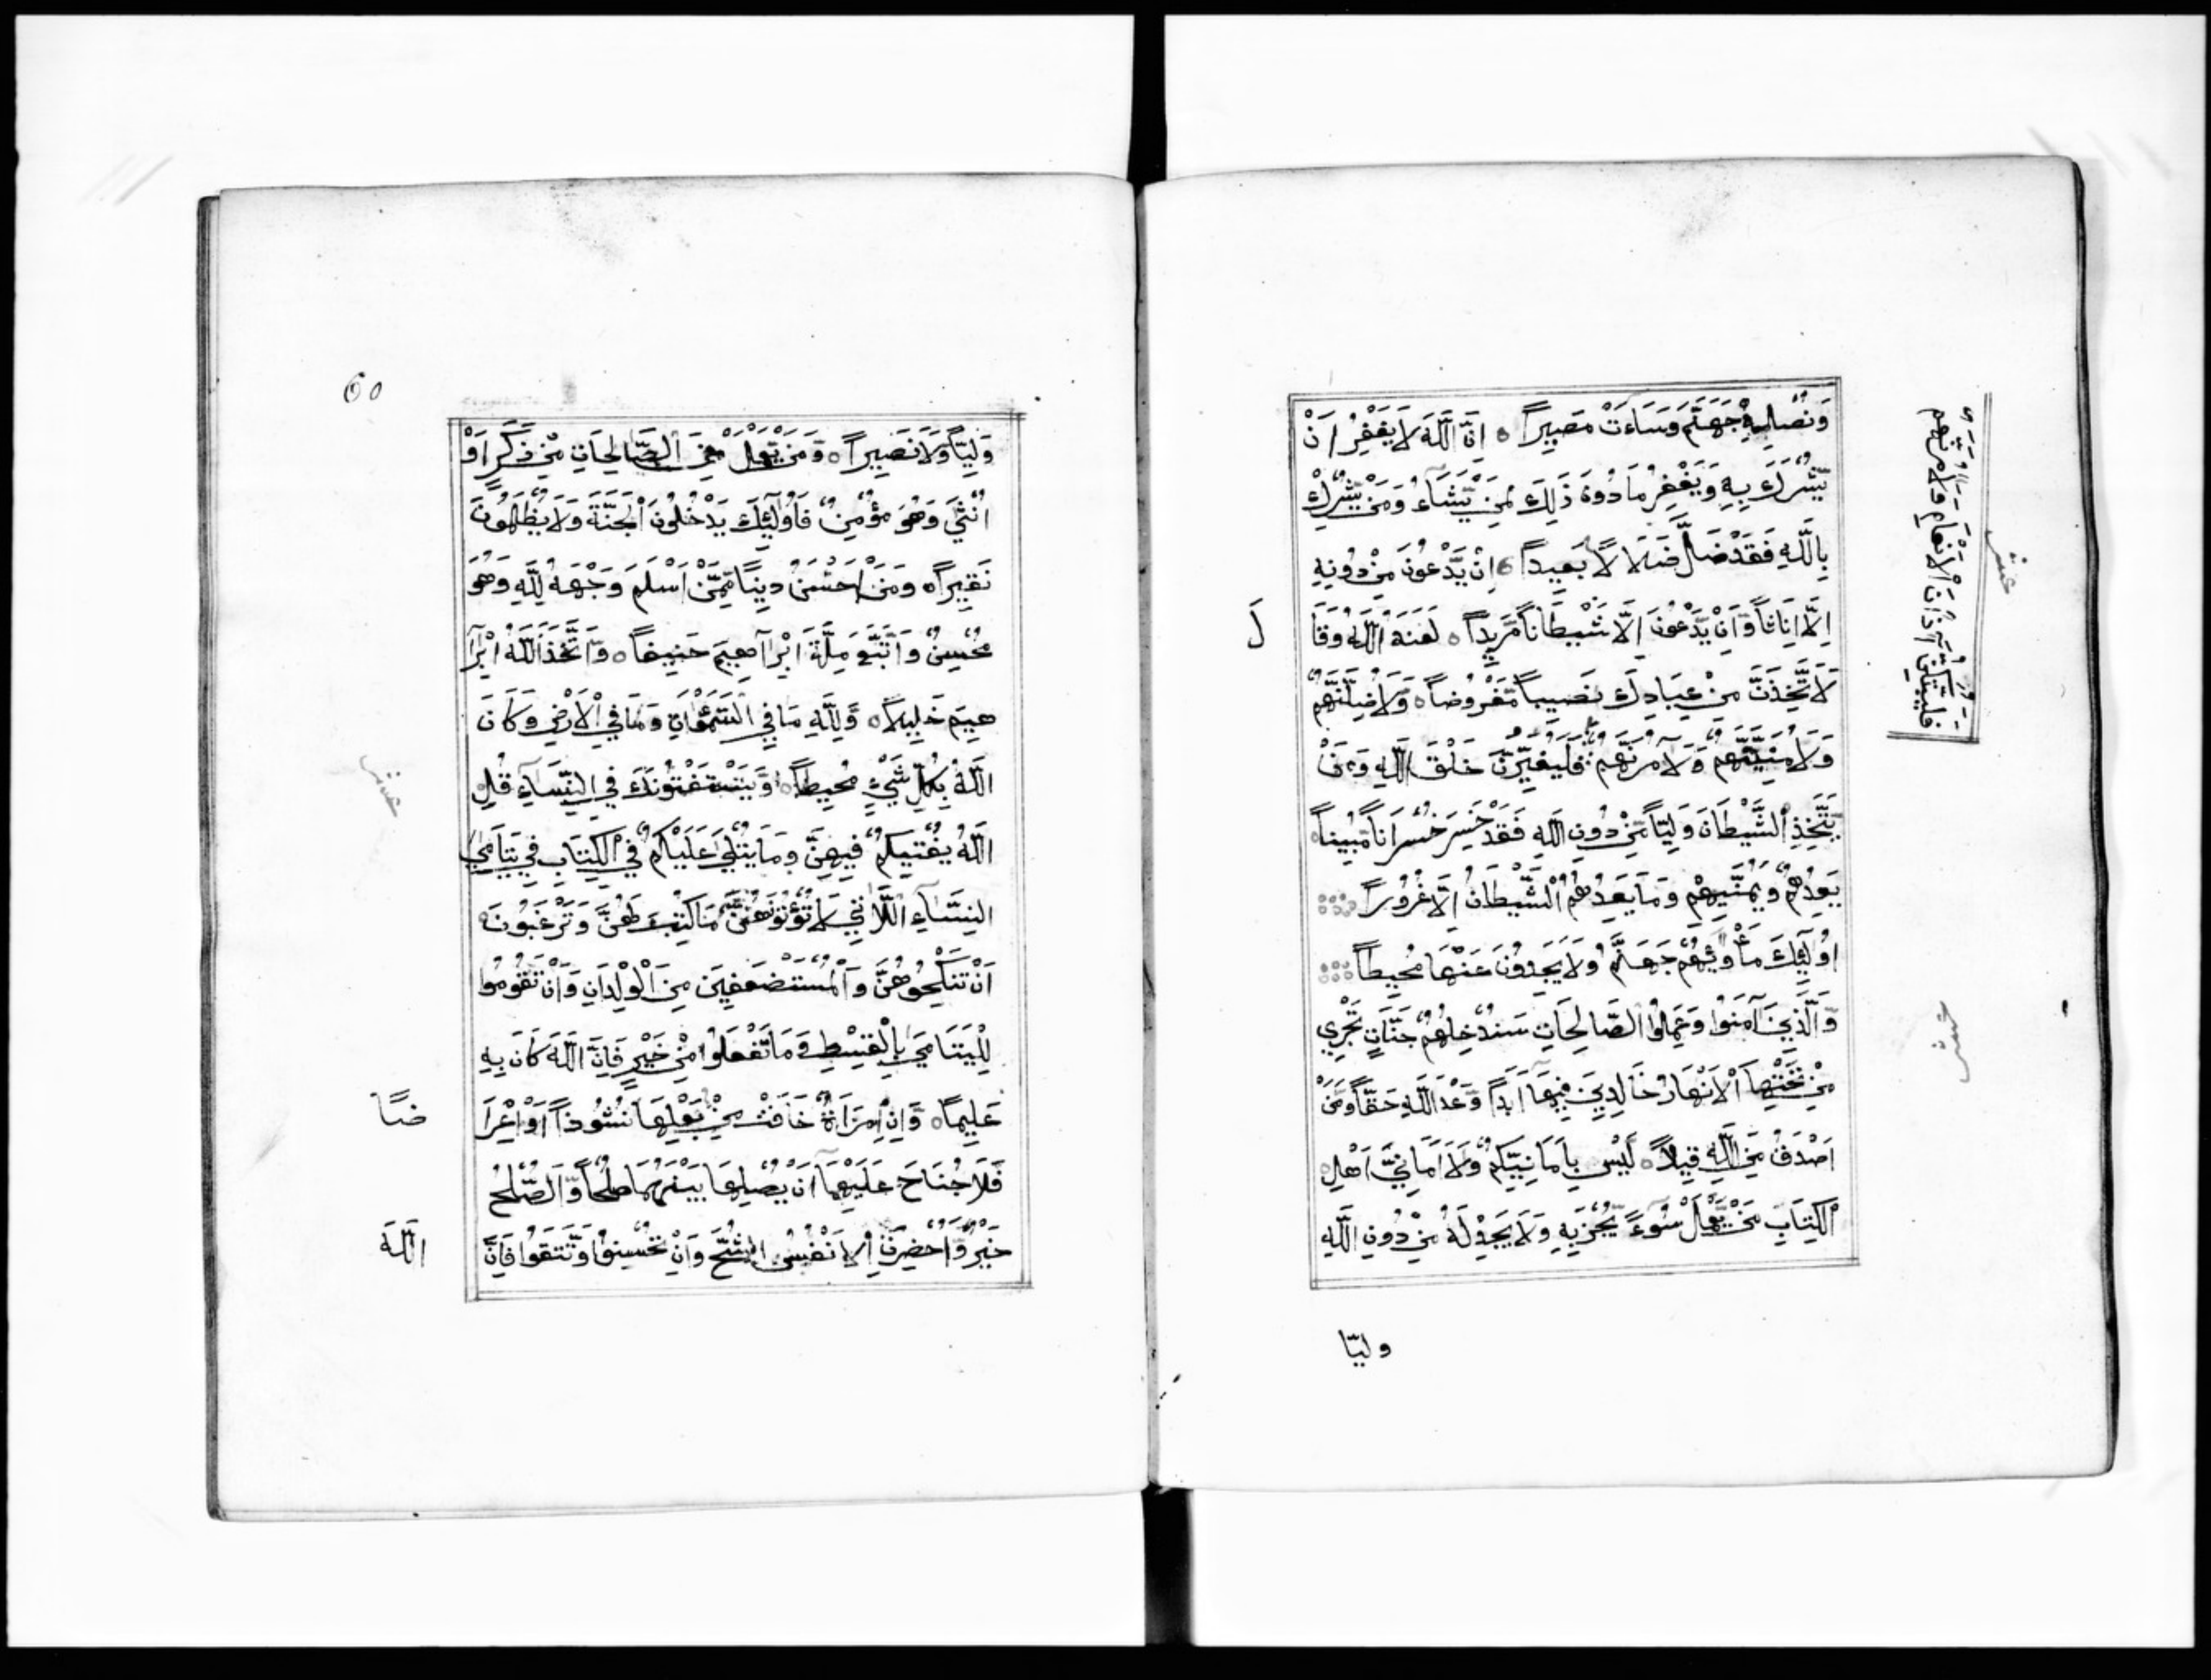 وَنُصْلِهِ جَهَنَّمَ وَسَاءَتْ مَصِيرًا ○ اِنَّ اللَّهَ لَا يَغْفِرُ اَنْ
يُّشْرَكَ بِهِ وَيَغْفِرُ مَا دُونَ ذَلِكَ لِمَنْ يَّشَاءُ وَمَنْ يُّشْرِكْ
بِاللَّهِ فَقَدْ ضَلَّ ضَلَالًا بَعِيدًا ○ اِنْ يَّدْعُونَ مِنْ دُونِهِ
اِلَّا اِنَاثًا وَّاِنْ يَّدْعُونَ اِلَّا شَيْطَانًا مَّرِيدًا ○ لَعَنَهُ اللَّهُ وَقَا
لَ
لَاَتَّخِذَنَّ مِنْ عِبَادِكَ نَصِيبًا مَّفْرُوضًا ○ وَّلَاُضِلَّنَّهُمْ
وَلَاُمَنِّيَنَّهُمْ وَلَآمُرَنَّهُمْ فَلَيُغَيِّرُنَّ خَلْقَ اللَّهِ وَمَنْ
فَلَيُبَتِّكُنَّ آذَانَ الْاَنْعَامِ وَلَآمُرَنَّهُمْ
يَّتَّخِذِ الشَّيْطَانَ وَلِيًّا مِّنْ دُونِ اللَّهِ فَقَدْ خَسِرَ خُسْرَانًا مُّبِينًا ○
يَعِدُهُمْ وَيُمَنِّيهِمْ وَمَا يَعِدُهُمُ الشَّيْطَانُ اِلَّا غُرُورًا
اُولَٓئِكَ مَأْوٰيهُمْ جَهَنَّمُ وَلَا يَجِدُونَ عَنْهَا مَحِيصًا
وَّالَّذِينَ آمَنُوا وَعَمِلُوا الصَّالِحَاتِ سَنُدْخِلُهُمْ جَنَّاتٍ تَجْرِي
مِنْ تَحْتِهَا الْاَنْهَارُ خَالِدِينَ فِيهَا اَبَدًا وَّعْدَ اللَّهِ حَقًّا وَّمَنْ
اَصْدَقُ مِنَ اللَّهِ قِيلًا ○ لَيْسَ بِاَمَانِيِّكُمْ وَلَا اَمَانِيِّ اَهْلِ
الْكِتَابِ مَنْ يَّعْمَلْ سُوءً يُّجْزَ بِهِ وَلَا يَجِدْ لَهُ مِنْ دُونِ اللَّهِ
وليّا
عشر
عشر
60
وَلِيًّا وَّلَا نَصِيرًا ○ وَّمَنْ يَّعْمَلْ مِنَ الصَّالِحَاتِ مِنْ ذَكَرٍ اَوْ
اُنْثَى وَهُوَ مُؤْمِنٌ فَاُولَٓئِكَ يَدْخُلُونَ الْجَنَّةَ وَلَا يُظْلَمُونَ
نَقِيرًا ○ وَمَنْ اَحْسَنُ دِينًا مِّمَّنْ اَسْلَمَ وَجْهَهُ لِلَّهِ وَهُوَ
مُحْسِنٌ وَاتَّبَعَ مِلَّةَ اِبْرَاهِيمَ حَنِيفًا ○ وَّاتَّخَذَ اللَّهُ اِبْرَا
هِيمَ خَلِيلًا ○ وَّلِلَّهِ مَا فِي السَّمٰوَاتِ وَمَا فِي الْاَرْضِ وَكَانَ
اللَّهُ بِكُلِّ شَيْءٍ مُحِيطًا ○ وَّيَسْتَفْتُونَكَ فِي النِّسَاءِ قُلِ
اللَّهُ يُفْتِيكُمْ فِيهِنَّ وَمَا يُتْلَى عَلَيْكُمْ فِي الْكِتَابِ فِي يَتَامَى
النِّسَاءِ اللَّاتِي لَا تُؤْتُونَهُنَّ مَا كُتِبَ لَهُنَّ وَتَرْغَبُونَ
اَنْ تَنْكِحُوهُنَّ وَالْمُسْتَضْعَفِينَ مِنَ الْوِلْدَانِ وَاَنْ تَقُومُوا
لِلْيَتَامَى بِالْقِسْطِ وَمَا تَفْعَلُوا مِنْ خَيْرٍ فَاِنَّ اللَّهَ كَانَ بِهِ
عَلِيمًا ○ وَّاِنِ امْرَاَةٌ خَافَتْ مِنْ بَعْلِهَا نُشُوزًا اَوْ اِعْرَا
ضًا
فَلَا جُنَاحَ عَلَيْهِمَا اَنْ يُصْلِحَا بَيْنَهُمَا صُلْحًا وَّالصُّلْحُ
خَيْرٌ وَّاُحْضِرَتِ الْاَنْفُسُ الشُّحَّ وَاِنْ تُحْسِنُوا وَتَتَّقُوا فَاِنَّ
اللَّهَ